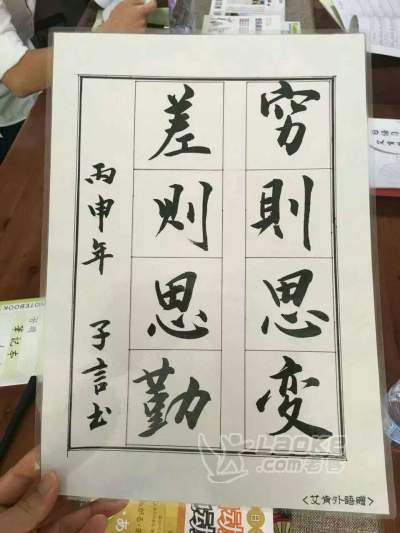 穷則思变
差则思勤
丙申年 子言书
<艾肯外語贈>
Laoke
.com老客
NOTEBOOK
筆記本